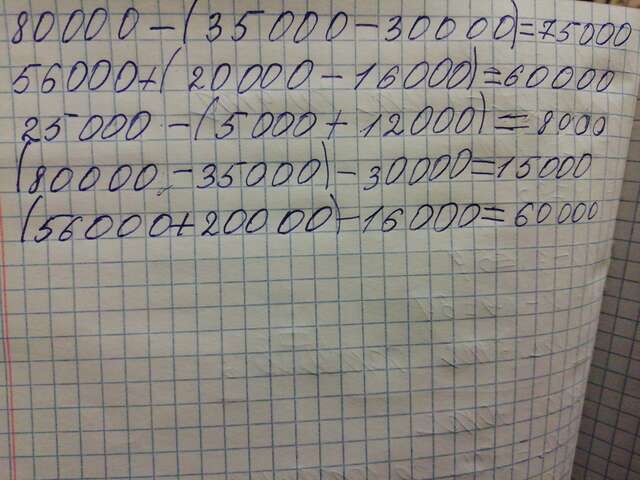 80000-(35000-30000)=75000
56000+(20000-16000)=60000
25000-(5000+12000)=8000
(80000-35000)-30000=15000
(56000+20000)-16000=60000